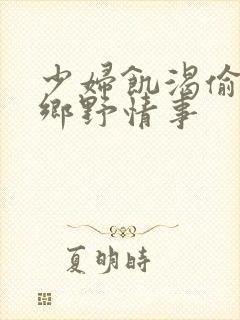 少婦飢渴偷
鄉野情事
夏明時